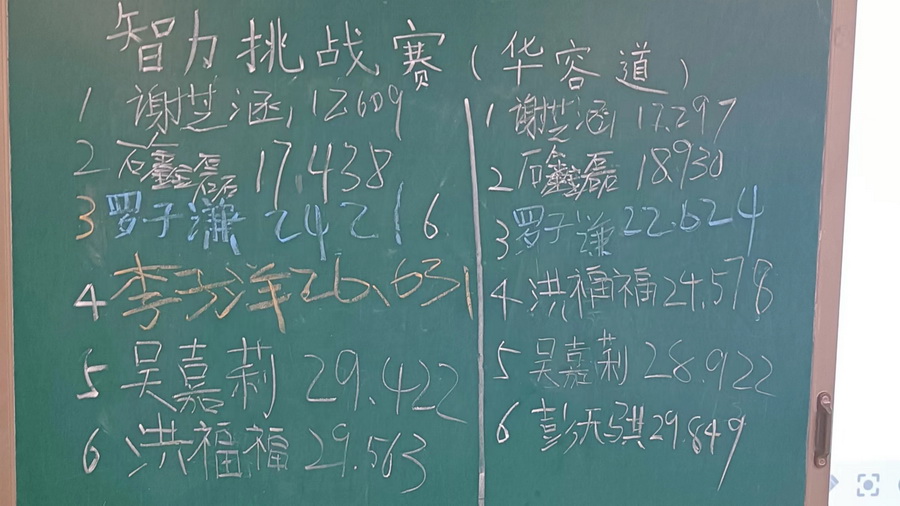 智力挑战赛（华容道）
1 谢芷涵 12.609
2 石鑫磊 17.438
3 罗子谦 24.216
4 李子洋 26.631
5 吴嘉莉 29.422
6 洪福福 29.563
1 谢芷涵 17.297
2 石鑫磊 18.930
3 罗子谦 22.624
4 洪福福 24.578
5 吴嘉莉 28.922
6 彭天骐 29.849